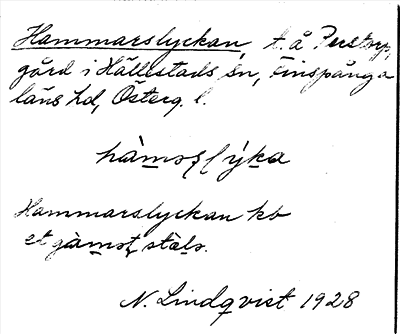 Hammarslyckan, t. å Perstorp,
gård i Hällestads sn, Finspånga
läns hd, Österg. l.
hàmosslỳka
Hammarslyckan kb
et gàmst stäls.
N. Lindqvist 1928